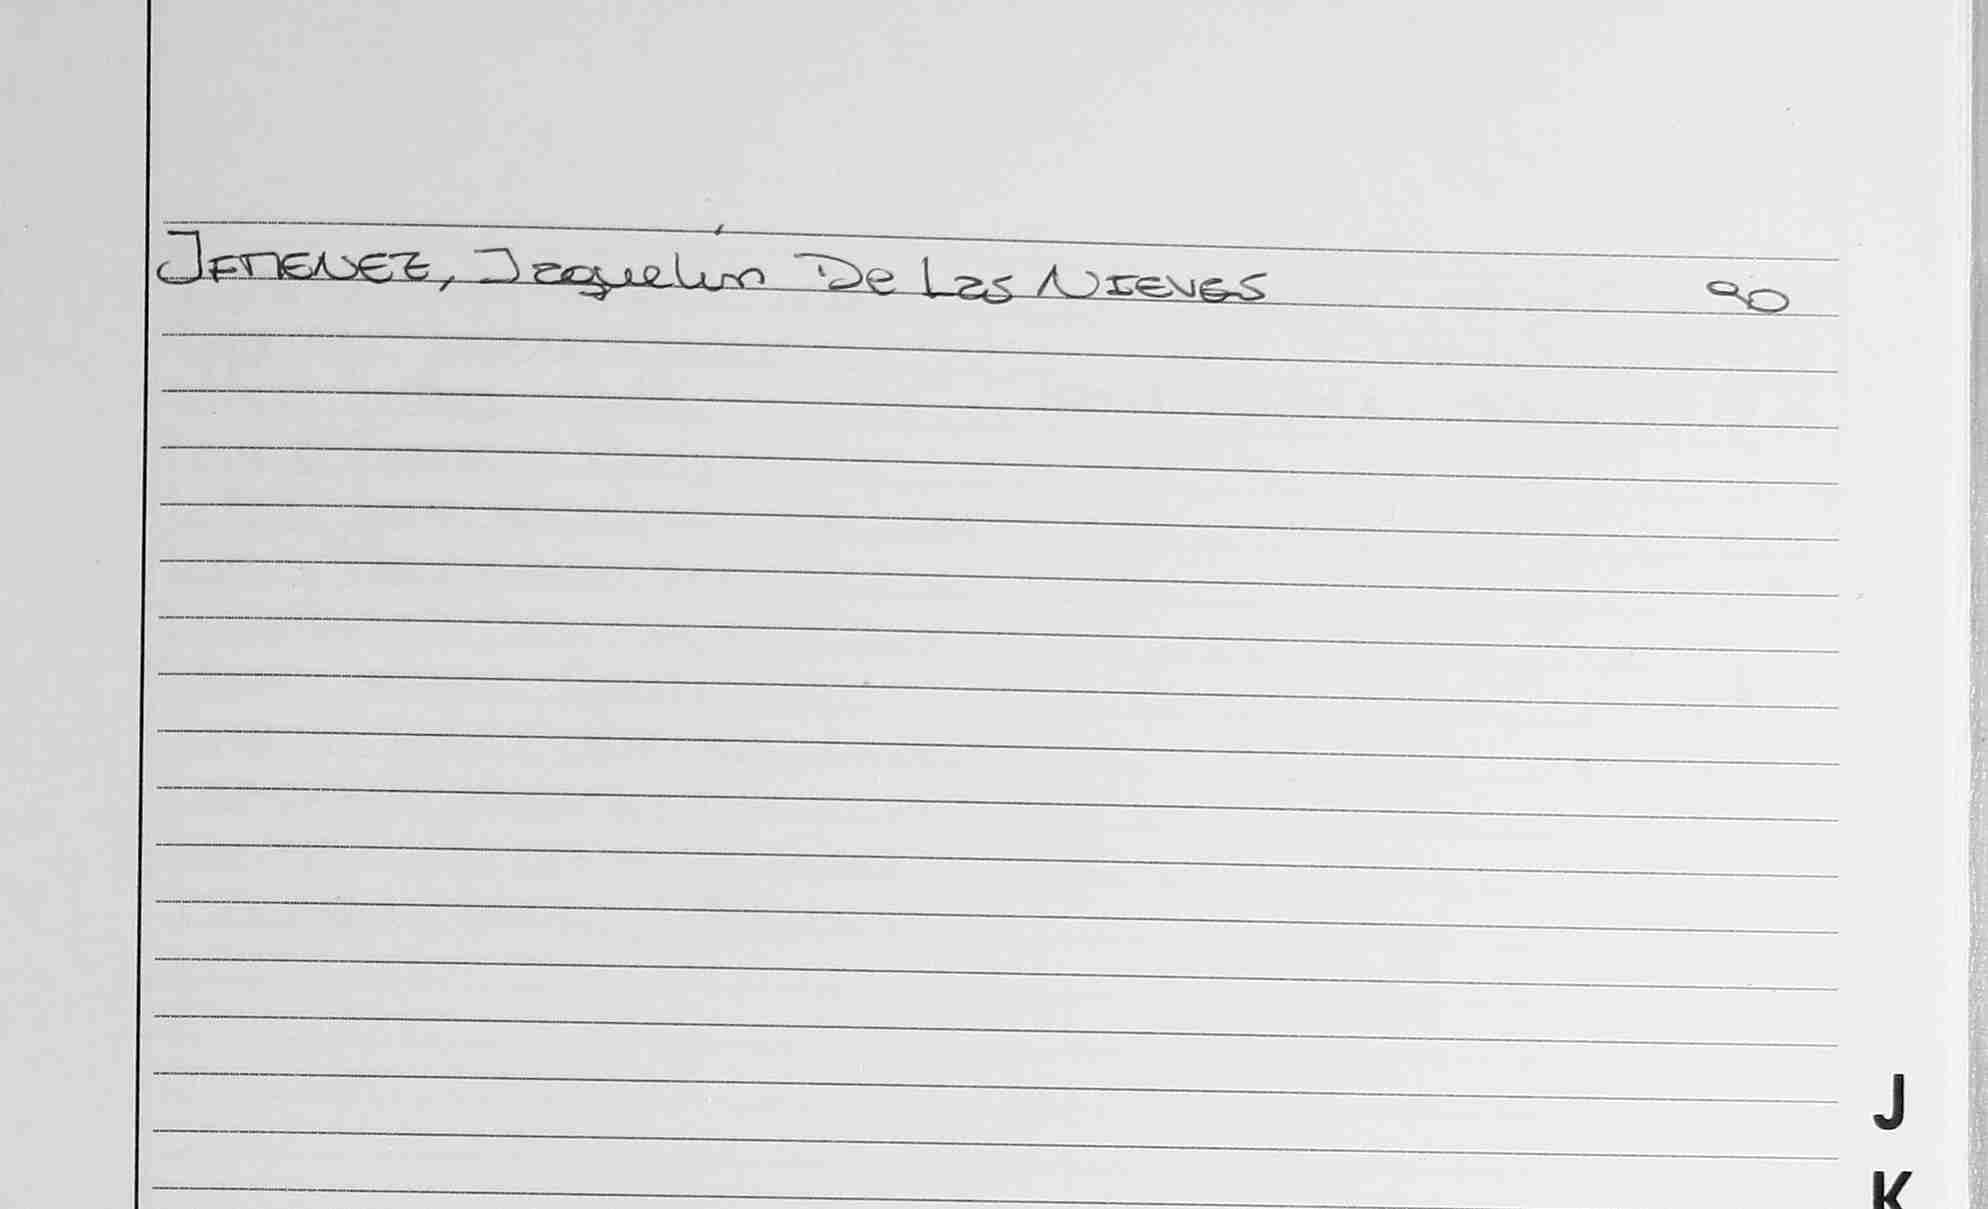 JIMENEZ, Jaquelin De Las NIEVES 90
J
K